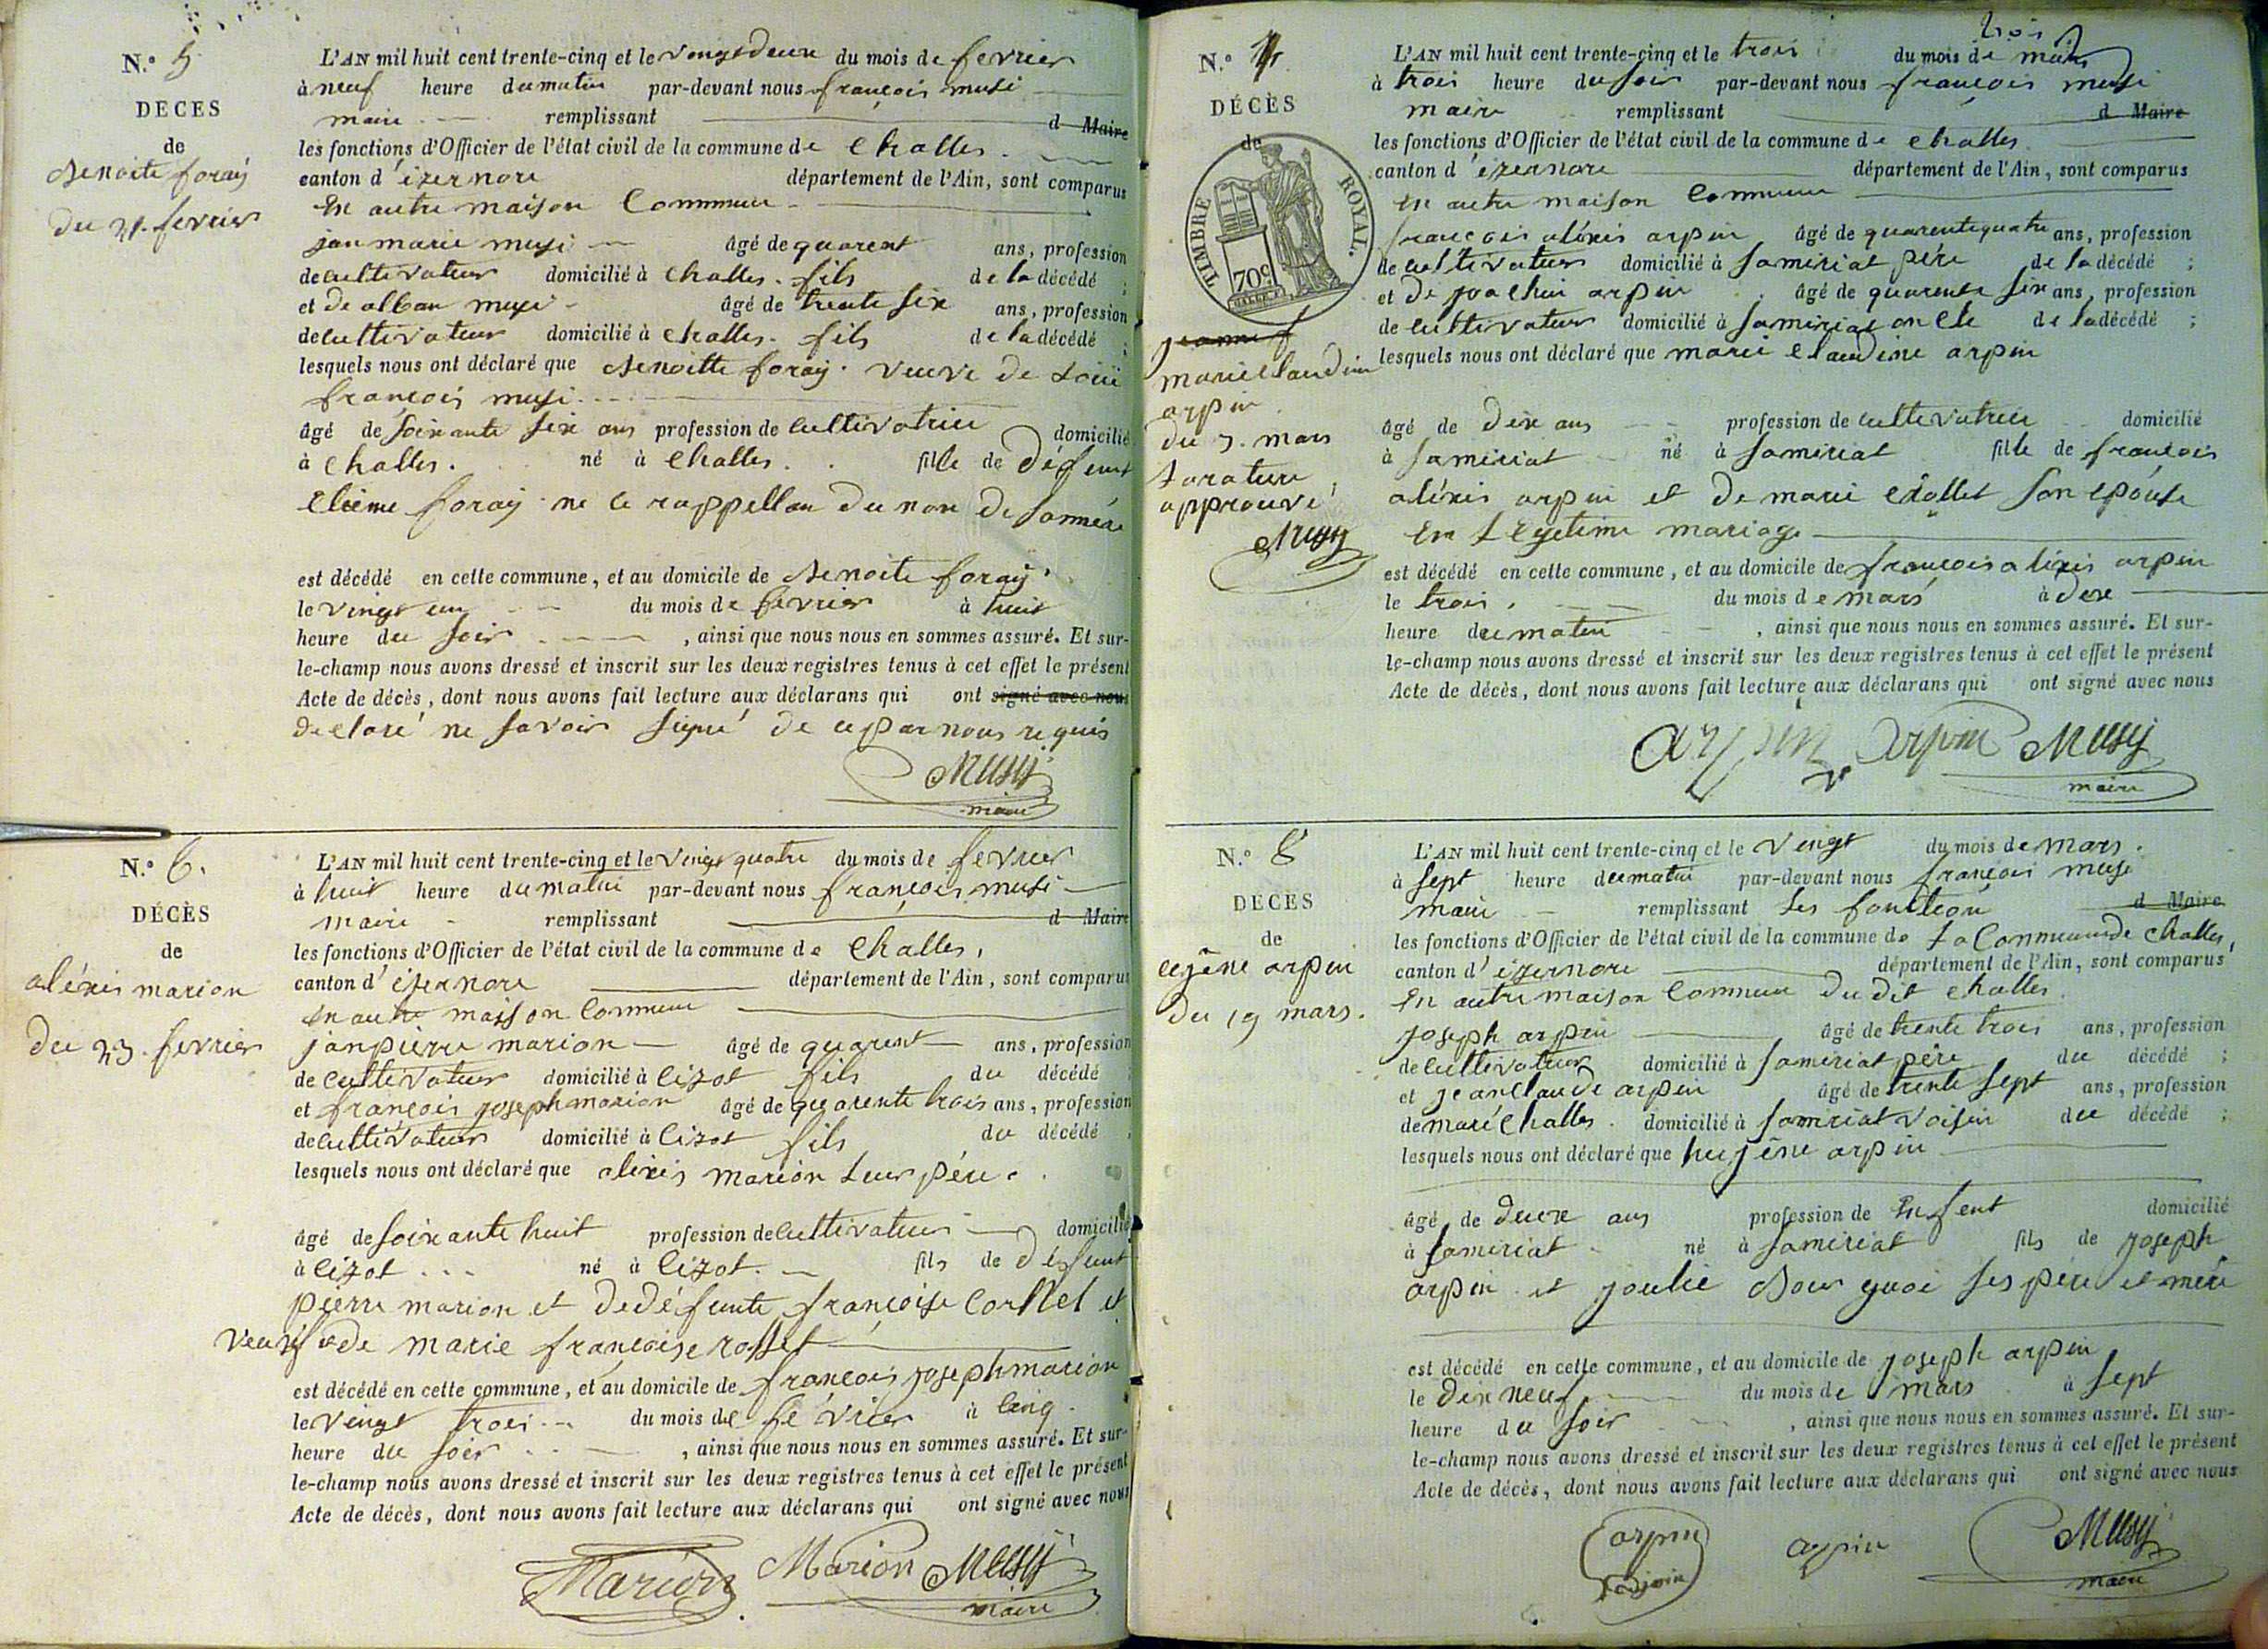 N.° 5
DÉCÈS
de
Benoite foray
du 21. fevrier
L'AN mil huit cent trente-cinq et le vengtdeux du mois de fevrier
à neuf heure du matin par-devant nous françois musi
maire remplissant d Maire
les fonctions d'Officier de l'état civil de la commune de Challes.
canton d'izernore département de l'Ain, sont comparus
En autre maison Commune
jan marie musi âgé de quarent ans, profession
de cultivateur domicilié à Challes. fils de la décédé ;
et de alban musi âgé de trente six ans, profession
de cultivateur domicilié à challes. fils de la décédé ;
lesquels nous ont déclaré que Benoitte foray. veuve de Loui
françois musi
âgé de soixante six ans profession de cultivatrice domicilié
à Challes. né à Challes. fille de défeunt
foray ne ce rappellan du non de sa mére
est décédé en cette commune, et au domicile de Benoite foray.
le vingt un du mois de fevrier à huit
heure du soir , ainsi que nous nous en sommes assuré. Et sur-
le-champ nous avons dressé et inscrit sur les deux registres tenus à cet effet le présent
Acte de décès, dont nous avons fait lecture aux déclarans qui ont signé avec nous
declaré ne savoir signé de ce par nous requis
Musy
maire
N.° 6.
DÉCÈS
de
aléxis marion
du 23. fevrier
L'AN mil huit cent trente-cinq et le vingt quatre du mois de fevrier
à huit heure du matin par-devant nous françois musi
maire remplissant d Maire
les fonctions d'Officier de l'état civil de la commune de Challes,
canton d'izernore département de l'Ain, sont comparus
En autre maison Commune
janpierre marion âgé de quarent ans, profession
de cultivateur domicilié à Cizot fils du décédé
et françois joseph marion âgé de quarente trois ans, profession
de cultivateur domicilié à Cizot fils du décédé
lesquels nous ont déclaré que alixis marion Leur pére.
âgé de soixante huit profession de cultivateur domicilié
à Cizot né à Cizot. fils de défunt
pierre marion et de défunte françoise et
veuf de marie françoise rosset
est décédé en cette commune, et au domicile de françois joseph marion
le vingt trois du mois de février à cinq.
heure du soir , ainsi que nous nous en sommes assuré. Et sur-
le-champ nous avons dressé et inscrit sur les deux registres tenus à cet effet le présent
Acte de décès, dont nous avons fait lecture aux déclarans qui ont signé avec nous
Marion Marion Musy
maire
N.°
DÉCÈS
de
TIMBRE ROYAL.
70c.
marie claudine
arpin
du 3. mars
Larature
approuvé
Musy
trois
L'AN mil huit cent trente-cinq et le trois du mois de mars
à trois heure du soir par-devant nous françois musi
maire remplissant d Maire
les fonctions d'Officier de l'état civil de la commune de challes
canton d'izernore département de l'Ain, sont comparus
En autre maison Commune
françois aléxis arpin âgé de quarente quatre ans, profession
de cultivateur domicilié à samiriat pére de la décédé ;
et de joachin arpin âgé de quarente six ans, profession
de cultivateur domicilié à samiriat oncle de la décédé ;
lesquels nous ont déclaré que marie claudine arpin
âgé de dix ans profession de cultivatrice domicilié
à samiriat né à samiriat fille de françois
aléxis arpin et de marie son epouse
en Legetime mariage
est décédé en cette commune, et au domicile de françois alixis arpin
le trois. du mois de mars à dix
heure du matin , ainsi que nous nous en sommes assuré. Et sur-
le-champ nous avons dressé et inscrit sur les deux registres tenus à cet effet le présent
Acte de décès, dont nous avons fait lecture aux déclarans qui ont signé avec nous
arpin arpin Musy
maire
N.° 8
DÉCÈS
de
eugêne arpin
du 19 mars.
L'AN mil huit cent trente-cinq et le vingt du mois de mars.
à sept heure du matin par-devant nous françois musi
maire remplissant Les fonction d Maire
les fonctions d'Officier de l'état civil de la commune de La Commune de Challes,
canton d'izernore département de l'Ain, sont comparus
En autre maison Commune du dit challes
joseph arpin âgé de trente trois ans, profession
de cultivateur domicilié à samiriat pére du décédé ;
et jean claude arpin âgé de trente sept ans, profession
de maréchalles. domicilié à samiriat voisin du décédé ;
lesquels nous ont déclaré que hugêne arpin
âgé de deux ans profession de Enfent domicilié
à samiriat né à samiriat fils de joseph
arpin et joulie Bourgoi ses pére et mére
est décédé en cette commune, et au domicile de joseph arpin
le dix neuf du mois de mars à sept
heure du soir , ainsi que nous nous en sommes assuré. Et sur-
le-champ nous avons dressé et inscrit sur les deux registres tenus à cet effet le présent
Acte de décès, dont nous avons fait lecture aux déclarans qui ont signé avec nous
arpin arpin Musy
maire